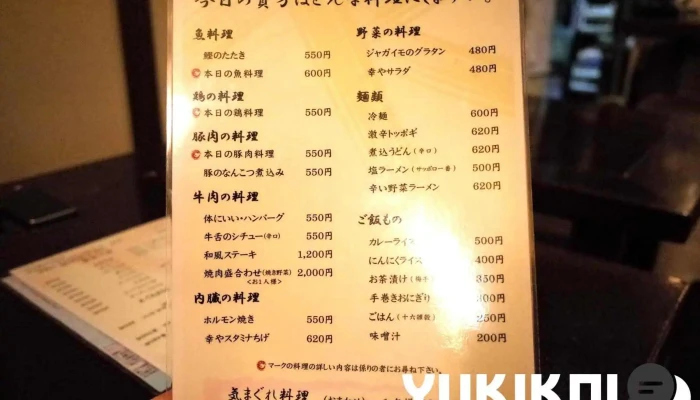 魚料理
鰹のたたき 550円
本日の魚料理 600円
鶏の料理
本日の鶏料理 550円
豚肉の料理
本日の豚肉料理 550円
豚のなんこつ煮込み 550円
牛肉の料理
体にいい・ハンバーグ 550円
牛舌のシチュー(辛口) 550円
和風ステーキ 1,200円
焼肉盛合わせ(焼き野菜) 2,000円
<お1人様>
内臓の料理
ホルモン焼き 550円
幸やスタミナちげ 620円
野菜の料理
ジャガイモのグラタン 480円
幸やサラダ 480円
麺類
冷麺 600円
激辛トッポギ 620円
煮込うどん(辛口) 620円
塩ラーメン(サッポロ一番) 500円
辛い野菜ラーメン 620円
ご飯もの
カレーライス 500円
にんにくライス 400円
お茶漬け(梅干) 350円
手巻きおにぎり 300円
ごはん(十六雑穀) 250円
味噌汁 200円
マークの料理の詳しい内容は係りの者にお尋ね下さい。
気まぐれ料理
YUKIKOI